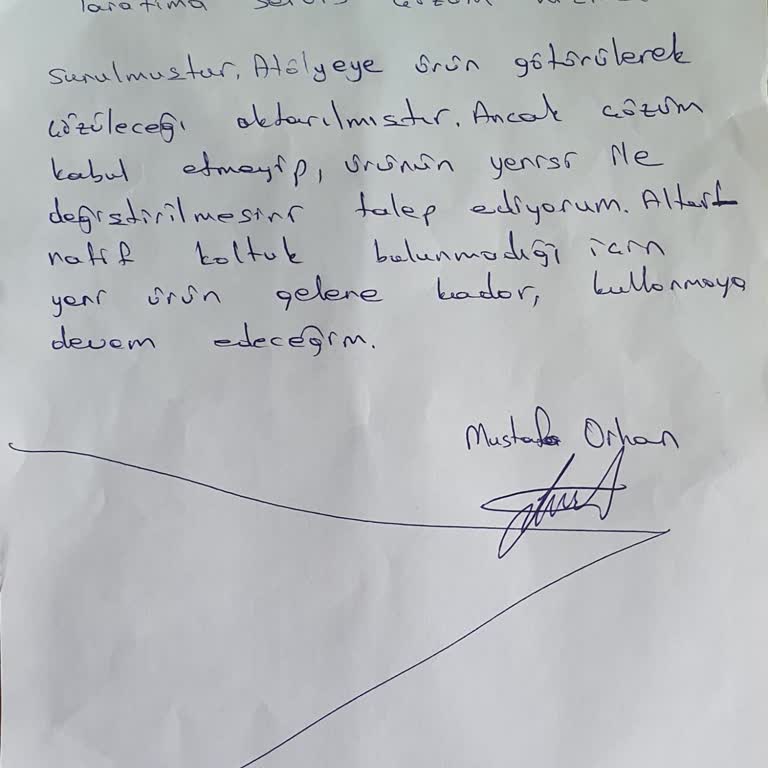 tarafıma servis çözüm
sunulmuştur. Atölyeye ürün götürülerek
çözüleceği aktarılmıştır. Ancak çözüm
kabul etmeyip, ürünün yenisi ile
değiştirilmesini talep ediyorum. Alter
natif koltuk bulunmadığı için
yeni ürün gelene kadar, kullanmaya
devam edeceğim.
Mustafa Orhan